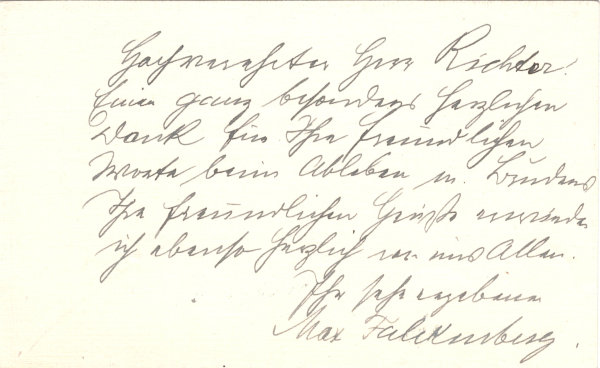 Hochverehrter Herr Richter!
Einen ganz besonders herzlichen
Dank für Ihre freundlichen
Worte beim Ableben m. Bruders
Ihre freundlichen Grüße erwiedre
ich ebenso herzlich von uns Allen.
Ihr sehr ergebener
Max Falkenberg.